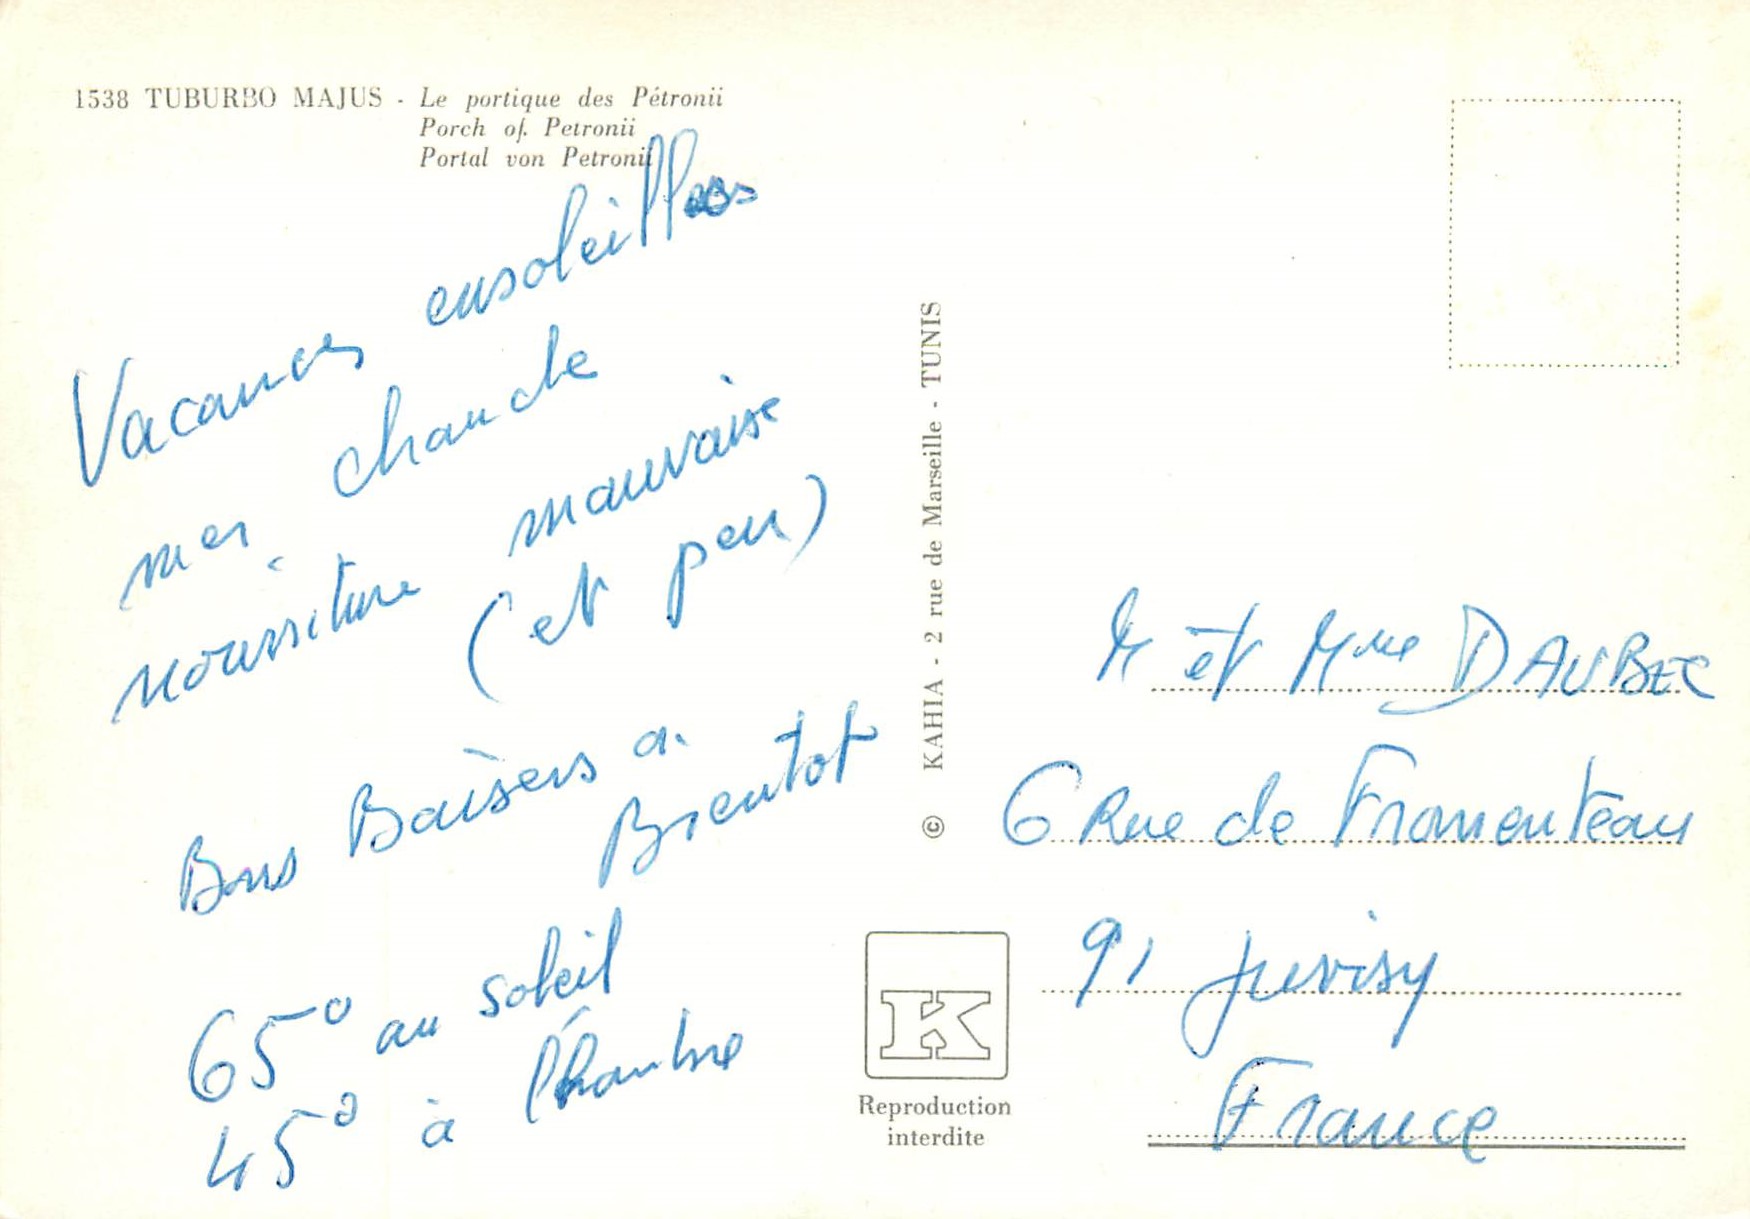 1538 TUBURBO MAJUS - Le portique des Pétronii
Porch of. Petronii
Portal von Petronii
Vacances ensoleillées
mer chaude
nourriture mauvaise
(et peu)
Bons Baisers a
Bientot
65° au soleil
45° à l'hombre
© KAHIA - 2 rue de Marseille - TUNIS
K
Reproduction
interdite
M et Mme DAUBEC
6 Rue de Fromenteau
91 Juvisy
France